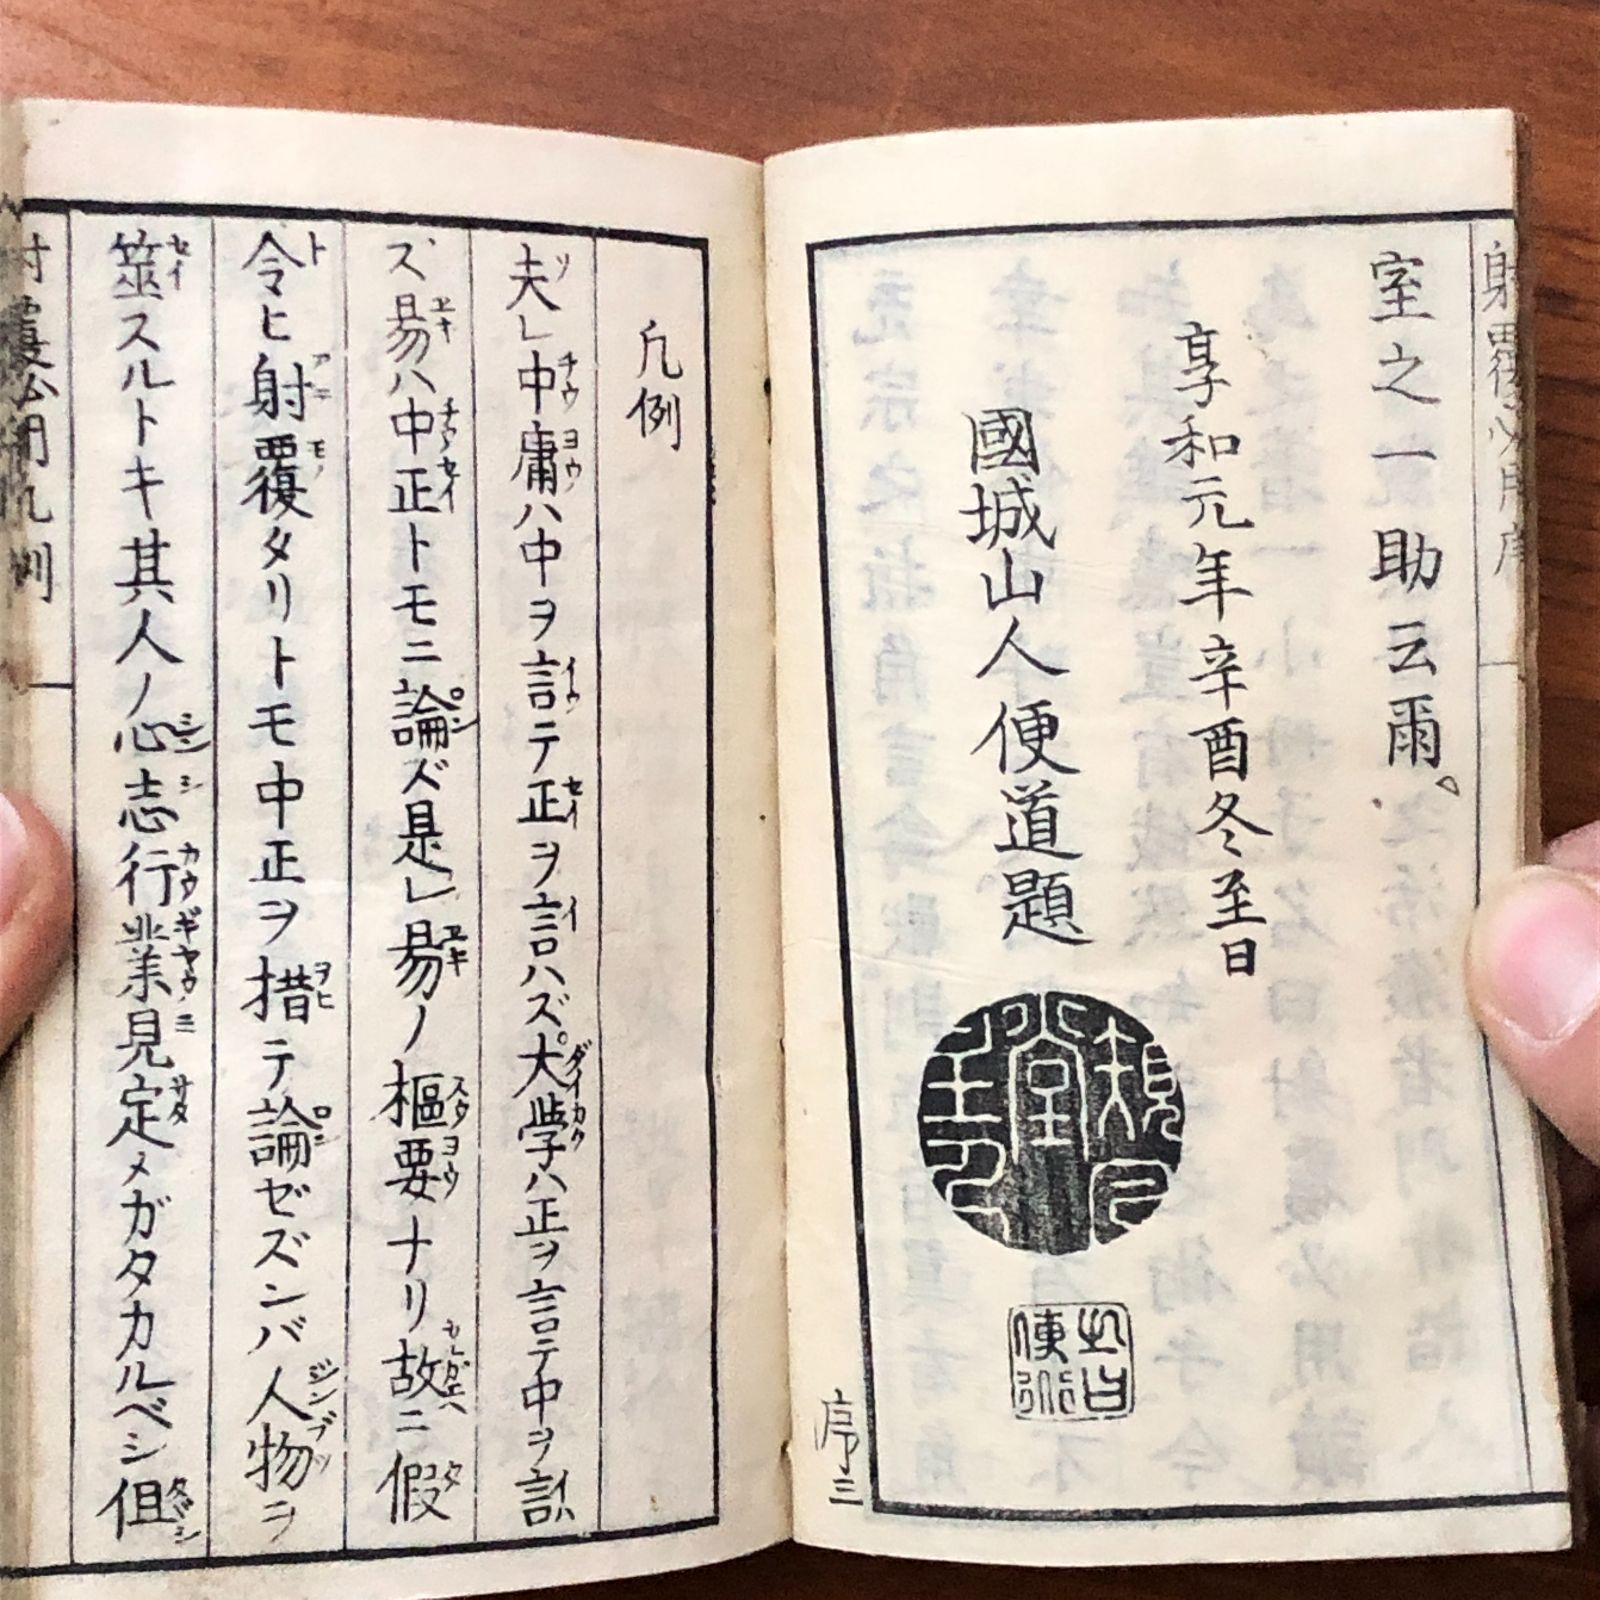 射覆必用序
室之一助云爾。
享和元年辛酉冬至日
國城山人便道題
序三
凡例
夫レ中庸ハ中ヲ言テ正ヲ言ハズ大學ハ正ヲ言テ中ヲ言
ズ易ハ中正トモニ論ズ是レ易ノ樞要ナリ故ニ假
令ヒ射覆タリトモ中正ヲ措テ論ゼズンバ人物ヲ
筮スルトキ其人ノ心志行業見定メガタカルベシ但
射覆必用凡例